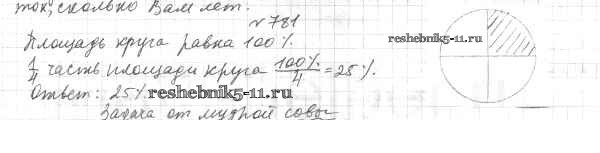 ток, сколько Вам лет.
№781
Площадь круга равна 100%.
reshebnik5-11.ru
1/4 часть площади круга 100%/4 = 25%.
Ответ: 25% reshebnik5-11.ru
Задача от мудрой совы